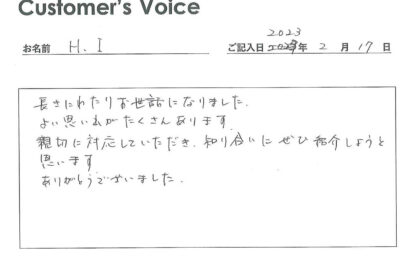 Customer's Voice
2023
お名前 H. I ご記入日 年 2 月 17 日
長きにわたりお世話になりました.
よい思い出がたくさんあります
親切に対応していただき. 知り合いに ぜひ紹介しようと
思います
ありがとうございました.